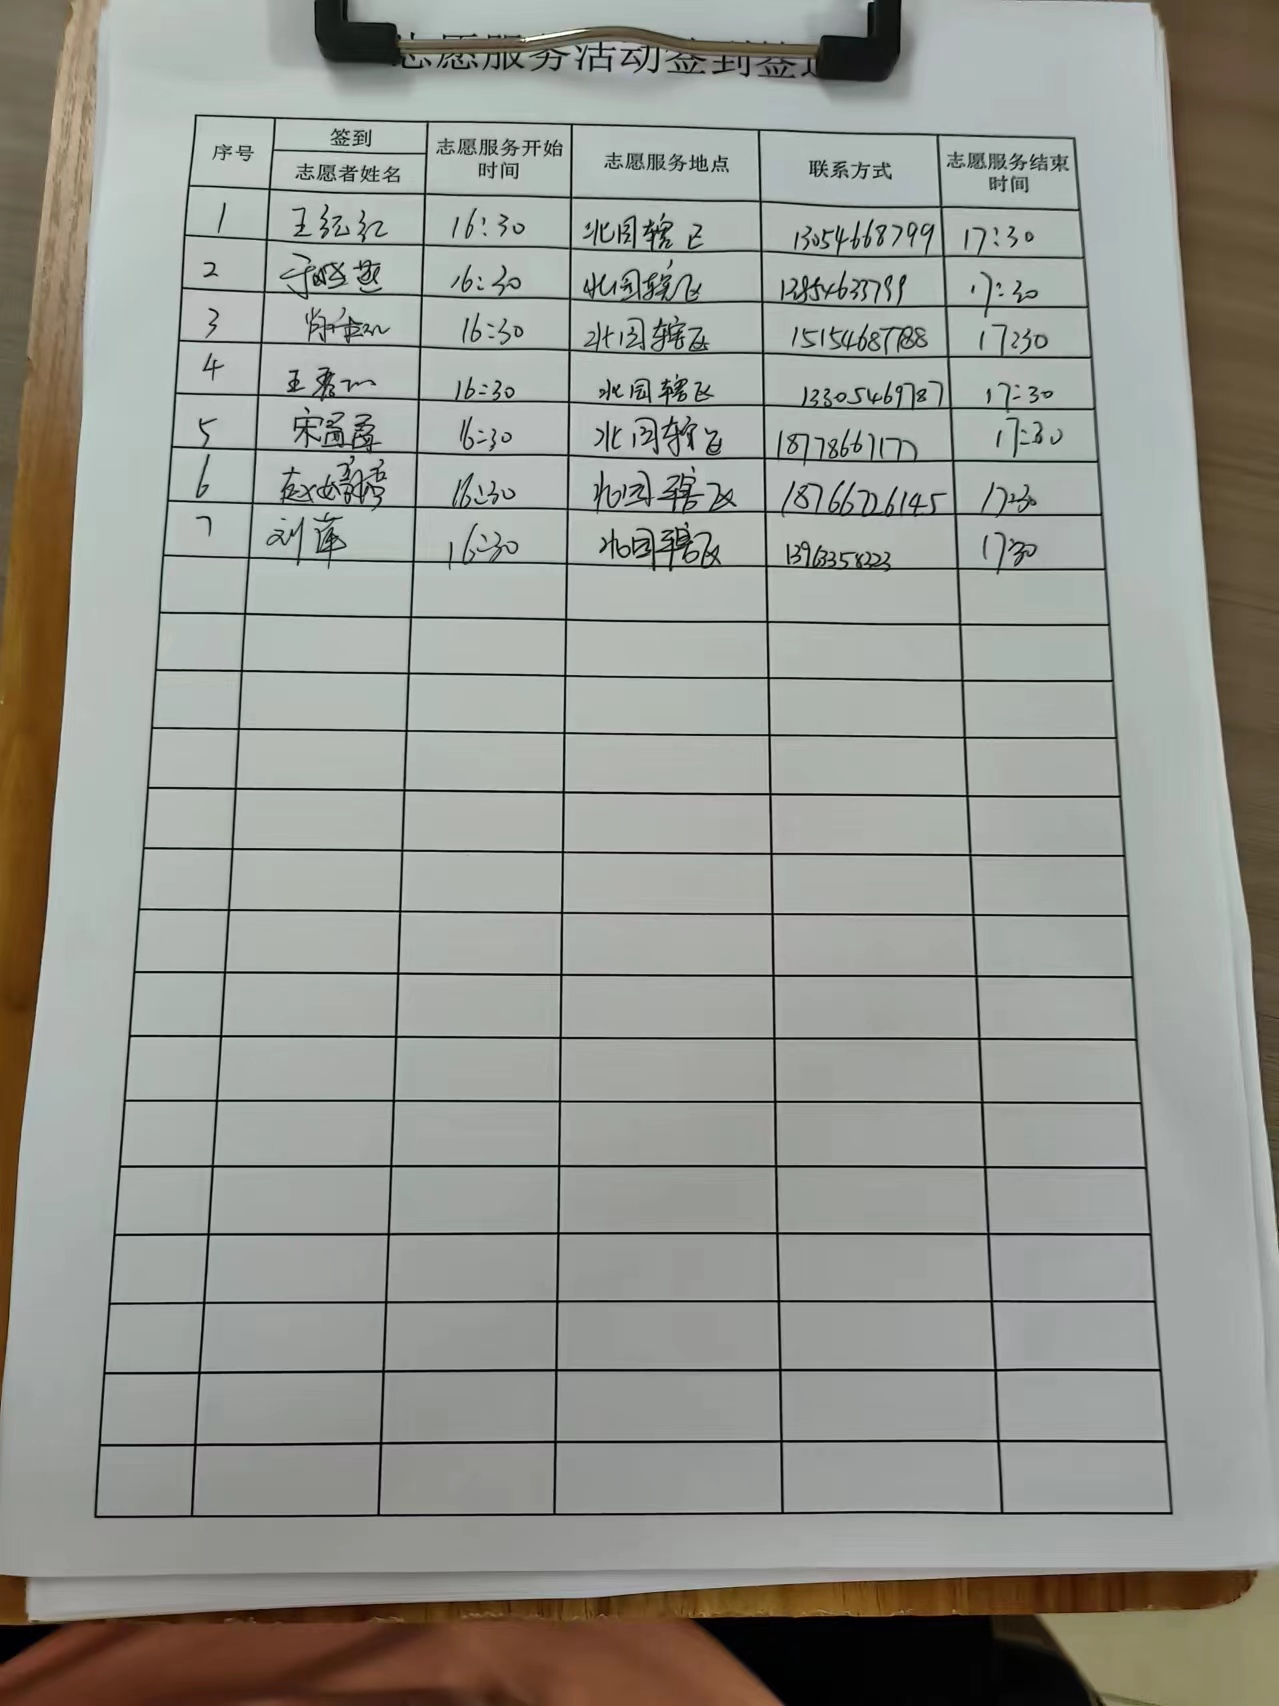 志愿服务活动签到签退
序号 签到 志愿服务开始时间 志愿服务地点 联系方式 志愿服务结束时间
志愿者姓名
1 王红红 16:30 北园辖区 13054668799 17:30
2 16:30 北园辖区 17:30
3 16:30 北园辖区 17:30
4 王 16:30 北园辖区 13305469787 17:30
5 宋 16:30 北园辖区 17:30
6 赵 16:30 北园辖区 18766726145 17:30
7 刘萍 16:30 北园辖区 13963358223 17:30